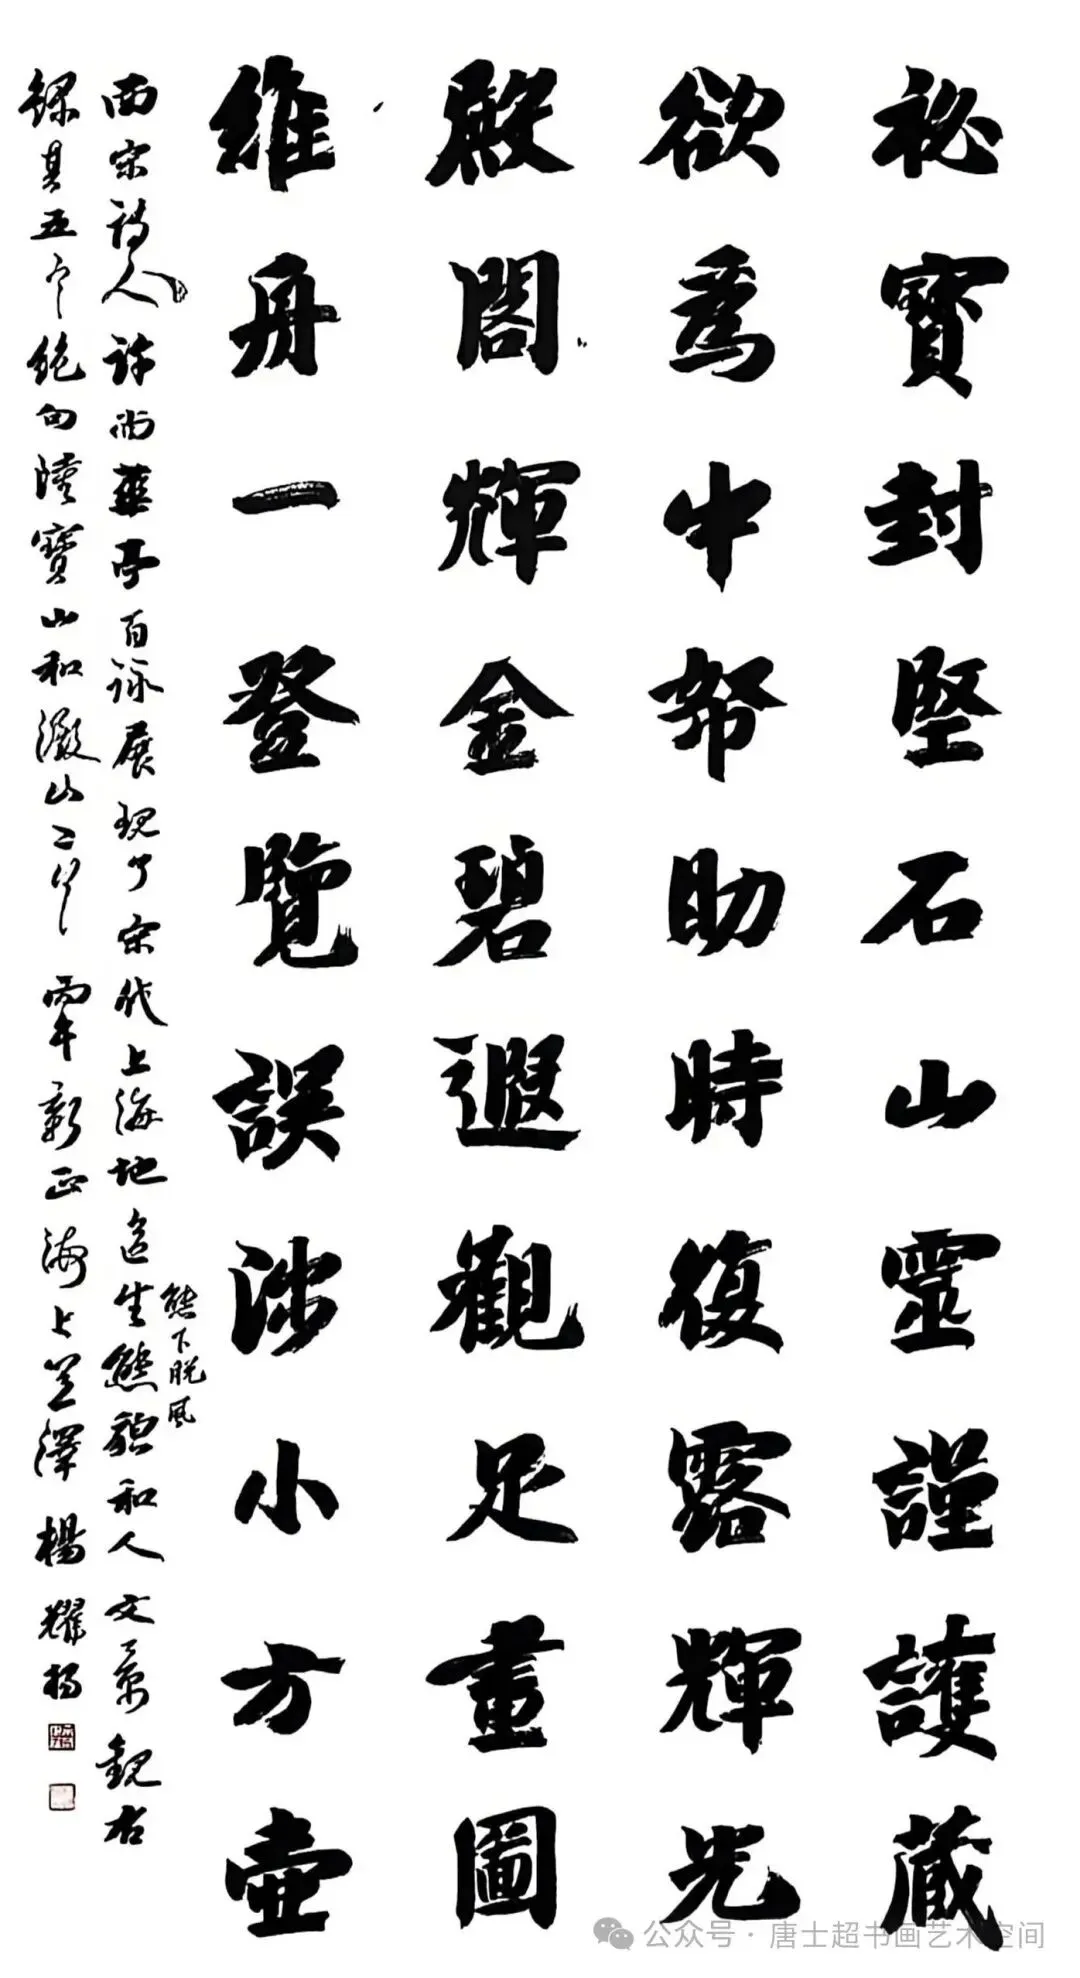 祕寶封堅石山靈謹護藏
欲爲中帑助時復露輝光
殿閣輝金碧遐觀足畫圖
維舟一登覽誤涉小方壺
西宋詩人許尚華亭百詠展現了宋代上海地邑生態貌和人文景觀右
態下脱風
録其五言絶句陸寶山和澱山二首 丙午新正海上芝澤楊耀揚
公众号·唐士超书画艺术空间